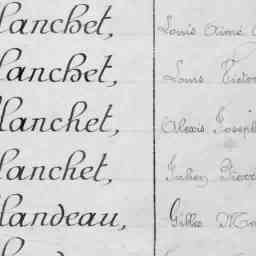 lanchet, Louis Aimé
lanchet, Louis Victor
lanchet, Alexis Joseph
lanchet, Julien Pierre
landeau, Gilles